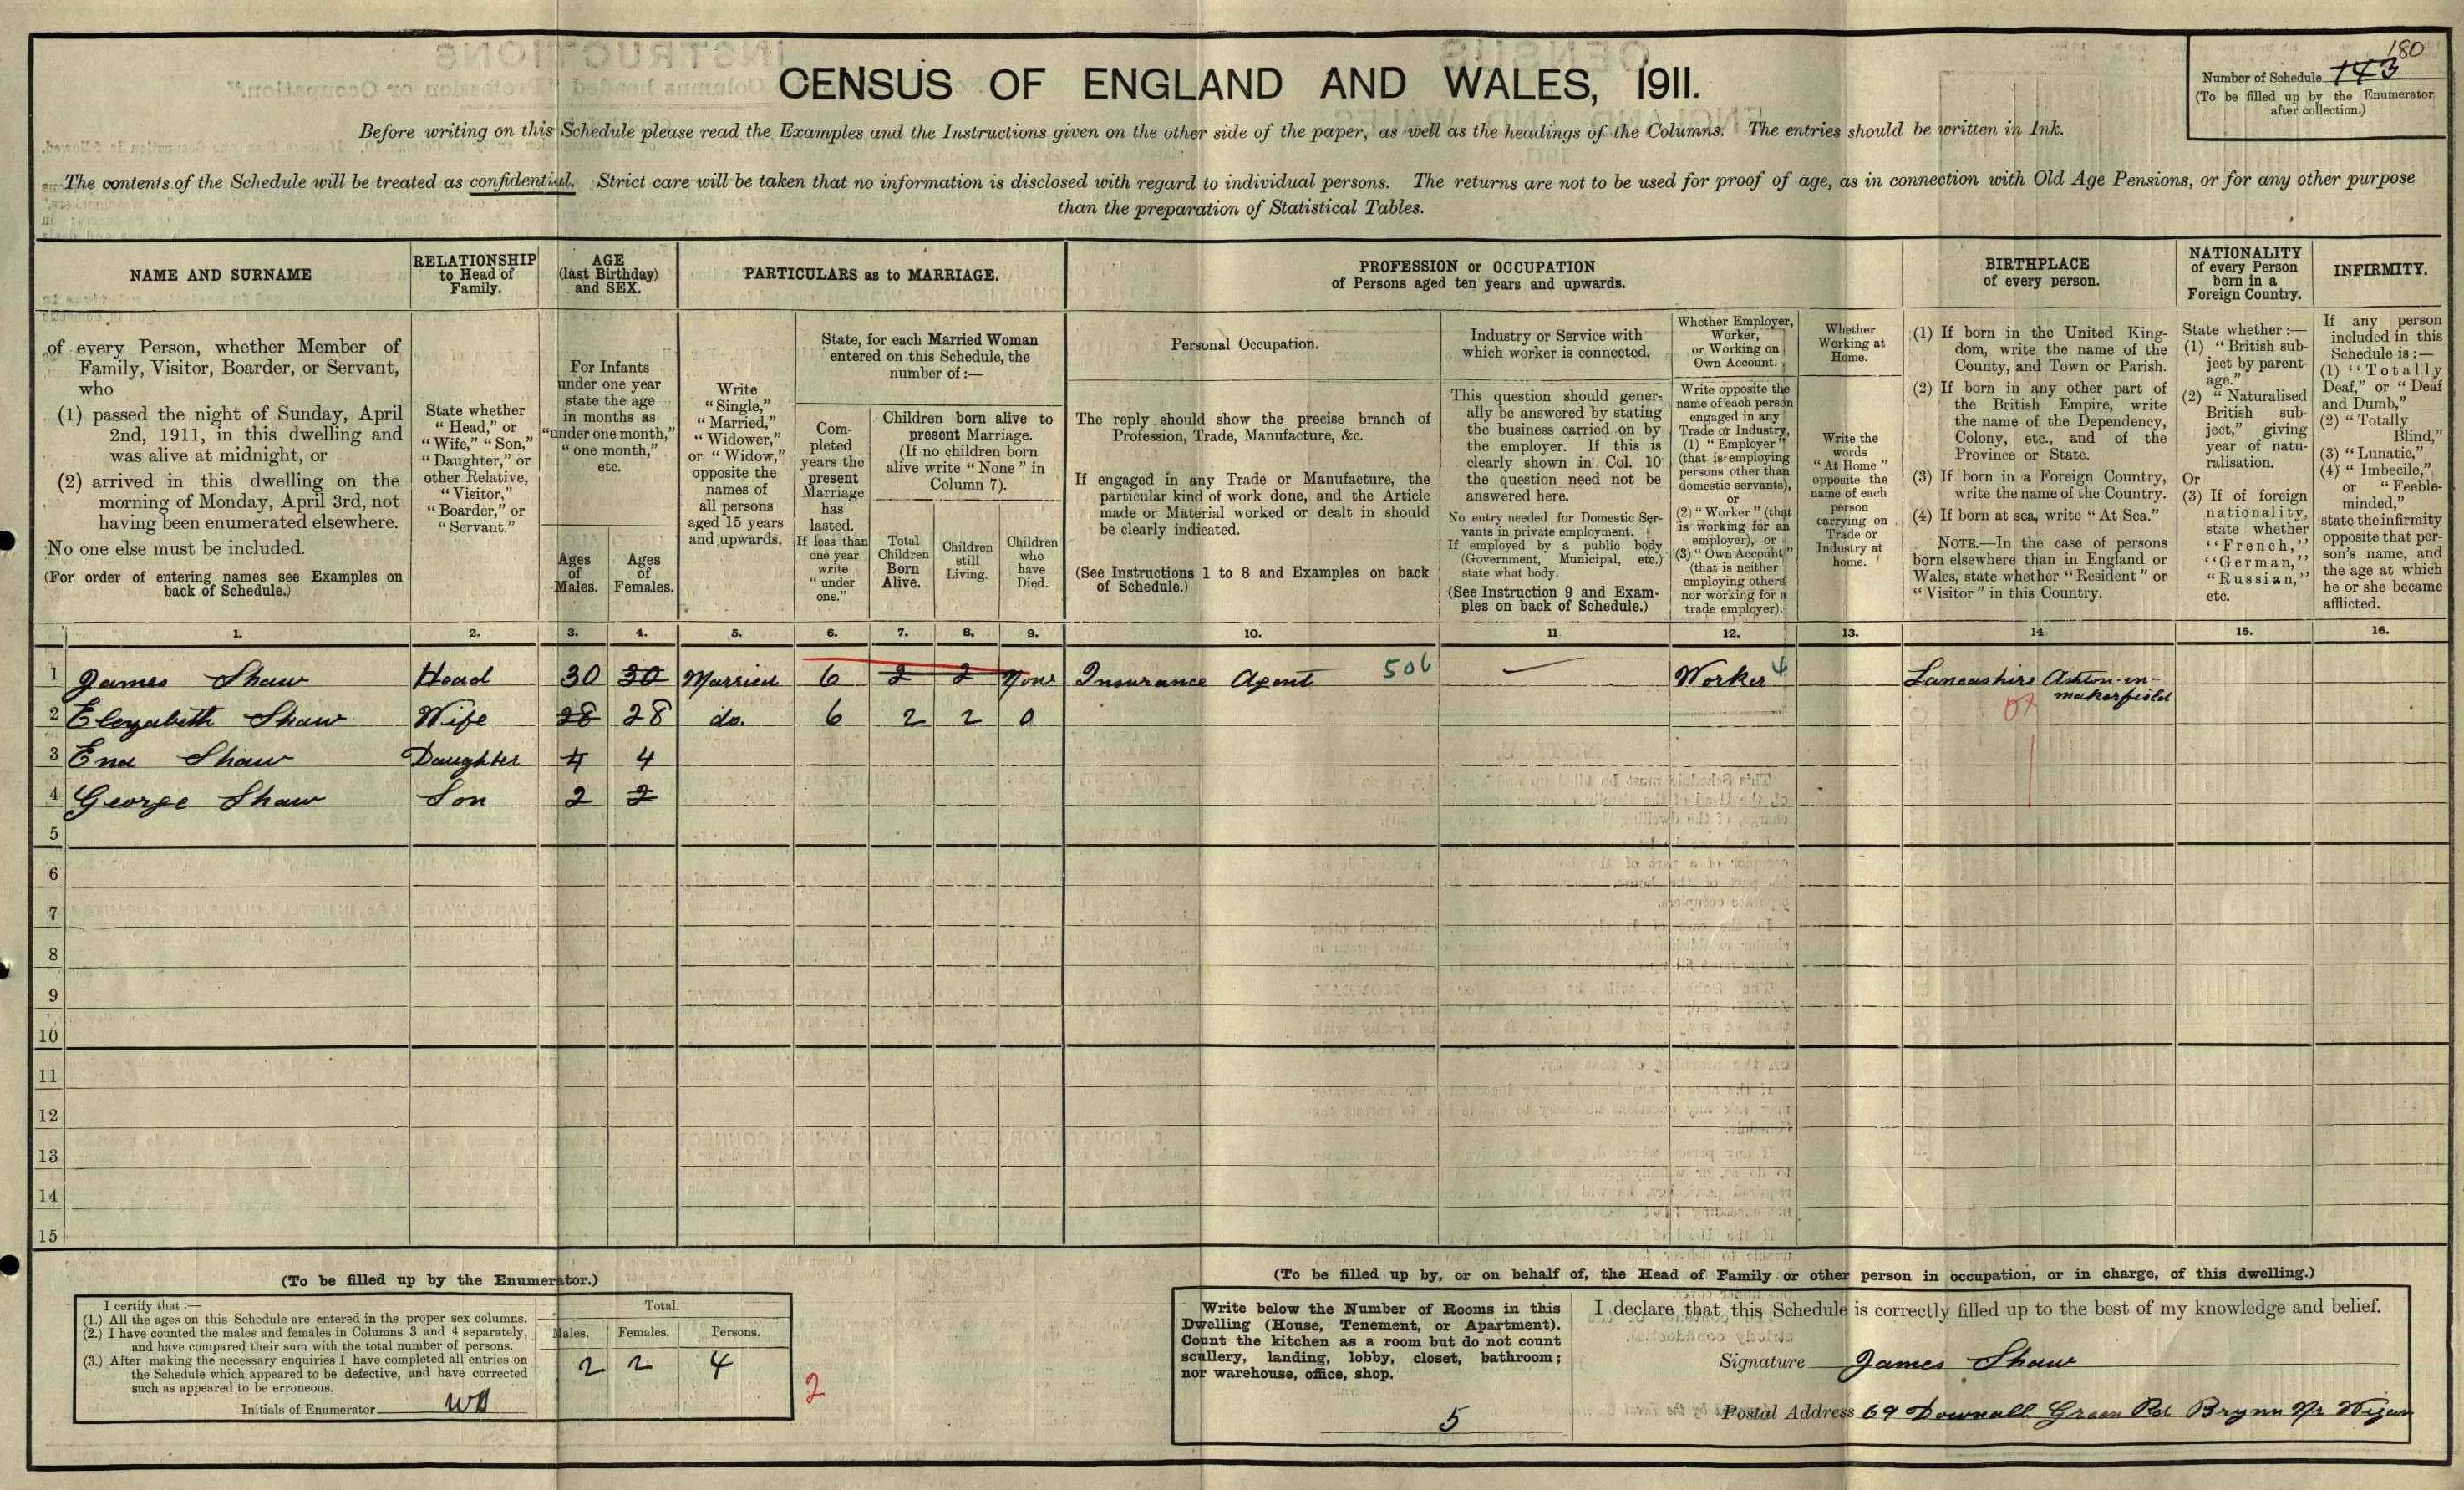 CENSUS OF ENGLAND AND WALES, 1911.
180
Number of Schedule 143
(To be filled up by the Enumerator
after collection.)
Before writing on this Schedule please read the Examples and the Instructions given on the other side of the paper, as well as the headings of the Columns. The entries should be written in Ink.
The contents of the Schedule will be treated as confidential. Strict care will be taken that no information is disclosed with regard to individual persons. The returns are not to be used for proof of age, as in connection with Old Age Pensions, or for any other purpose
than the preparation of Statistical Tables.
NAME AND SURNAME
of every Person, whether Member of
Family, Visitor, Boarder, or Servant,
who
(1) passed the night of Sunday, April
2nd, 1911, in this dwelling and
was alive at midnight, or
(2) arrived in this dwelling on the
morning of Monday, April 3rd, not
having been enumerated elsewhere.
No one else must be included.
(For order of entering names see Examples on
back of Schedule.)
RELATIONSHIP
to Head of
Family.
State whether
"Head," or
"Wife," "Son,"
"Daughter," or
other Relative,
"Visitor,"
"Boarder," or
"Servant."
AGE
(last Birthday)
and SEX.
For Infants
under one year
state the age
in months as
"under one month,"
"one month,"
etc.
Ages
of
Males.
Ages
of
Females.
PARTICULARS as to MARRIAGE.
Write
"Single,"
"Married,"
"Widower,"
or "Widow,"
opposite the
names of
all persons
aged 15 years
and upwards.
State, for each Married Woman
entered on this Schedule, the
number of:—
Com-
pleted
years the
present
Marriage
has
lasted.
If less than
one year
write
"under
one."
Children born alive to
present Marriage.
(If no children born
alive write "None" in
Column 7).
Total
Children
Born
Alive.
Children
still
Living.
Children
who
have
Died.
PROFESSION or OCCUPATION
of Persons aged ten years and upwards.
Personal Occupation.
The reply should show the precise branch of
Profession, Trade, Manufacture, &c.
If engaged in any Trade or Manufacture, the
particular kind of work done, and the Article
made or Material worked or dealt in should
be clearly indicated.
(See Instructions 1 to 8 and Examples on back
of Schedule.)
Industry or Service with
which worker is connected.
This question should gener-
ally be answered by stating
the business carried on by
the employer. If this is
clearly shown in Col. 10
the question need not be
answered here.
No entry needed for Domestic Ser-
vants in private employment.
If employed by a public body
(Government, Municipal, etc.)
state what body.
(See Instruction 9 and Exam-
ples on back of Schedule.)
Whether Employer,
Worker,
or Working on
Own Account.
Write opposite the
name of each person
engaged in any
Trade or Industry,
(1) "Employer"
(that is employing
persons other than
domestic servants),
or
(2) "Worker" (that
is working for an
employer), or
(3) "Own Account"
(that is neither
employing others
nor working for a
trade employer).
Whether
Working at
Home.
Write the
words
"At Home"
opposite the
name of each
person
carrying on
Trade or
Industry at
home.
BIRTHPLACE
of every person.
(1) If born in the United King-
dom, write the name of the
County, and Town or Parish.
(2) If born in any other part of
the British Empire, write
the name of the Dependency,
Colony, etc., and of the
Province or State.
(3) If born in a Foreign Country,
write the name of the Country.
(4) If born at sea, write "At Sea."
NOTE.—In the case of persons
born elsewhere than in England or
Wales, state whether "Resident" or
"Visitor" in this Country.
NATIONALITY
of every Person
born in a
Foreign Country.
State whether:—
(1) "British sub-
ject by parent-
age."
(2) "Naturalised
British sub-
ject," giving
year of natu-
ralisation.
Or
(3) If of foreign
nationality,
state whether
"French,"
"German,"
"Russian,"
etc.
INFIRMITY.
If any person
included in this
Schedule is:—
(1) "Totally
Deaf," or "Deaf
and Dumb,"
(2) "Totally
Blind,"
(3) "Lunatic,"
(4) "Imbecile,"
or "Feeble-
minded,"
state the infirmity
opposite that per-
son's name, and
the age at which
he or she became
afflicted.
1. 2. 3. 4. 5. 6. 7. 8. 9. 10. 11 12. 13. 14 15. 16.
1 James Shaw Head 30 30 Married 6 2 2 None Insurance Agent 506 — Worker 4 Lancashire Ashton-in-
makerfield
2 Elizabeth Shaw Wife 28 28 do. 6 2 2 0
3 Ena Shaw Daughter 4 4
4 George Shaw Son 2 2
5
6
7
8
9
10
11
12
13
14
15
(To be filled up by the Enumerator.)
I certify that:—
(1.) All the ages on this Schedule are entered in the proper sex columns.
(2.) I have counted the males and females in Columns 3 and 4 separately,
and have compared their sum with the total number of persons.
(3.) After making the necessary enquiries I have completed all entries on
the Schedule which appeared to be defective, and have corrected
such as appeared to be erroneous.
Initials of Enumerator
Total.
Males. Females. Persons.
2 2 4
2
(To be filled up by, or on behalf of, the Head of Family or other person in occupation, or in charge, of this dwelling.)
Write below the Number of Rooms in this
Dwelling (House, Tenement, or Apartment).
Count the kitchen as a room but do not count
scullery, landing, lobby, closet, bathroom;
nor warehouse, office, shop.
5
I declare that this Schedule is correctly filled up to the best of my knowledge and belief.
Signature James Shaw
Postal Address 69 Downall Green Rd Brynn Nr Wigan